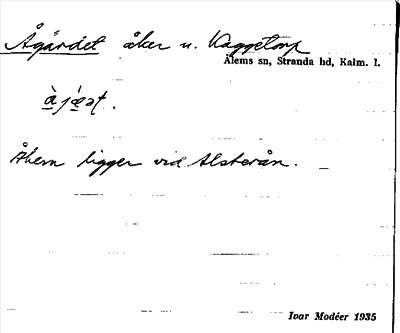 Ågärdet åker u. Kaggetorp
Ålems sn, Stranda hd, Kalm. l.
Åkern ligger vid Alsterån.
Ivar Modéer 1935